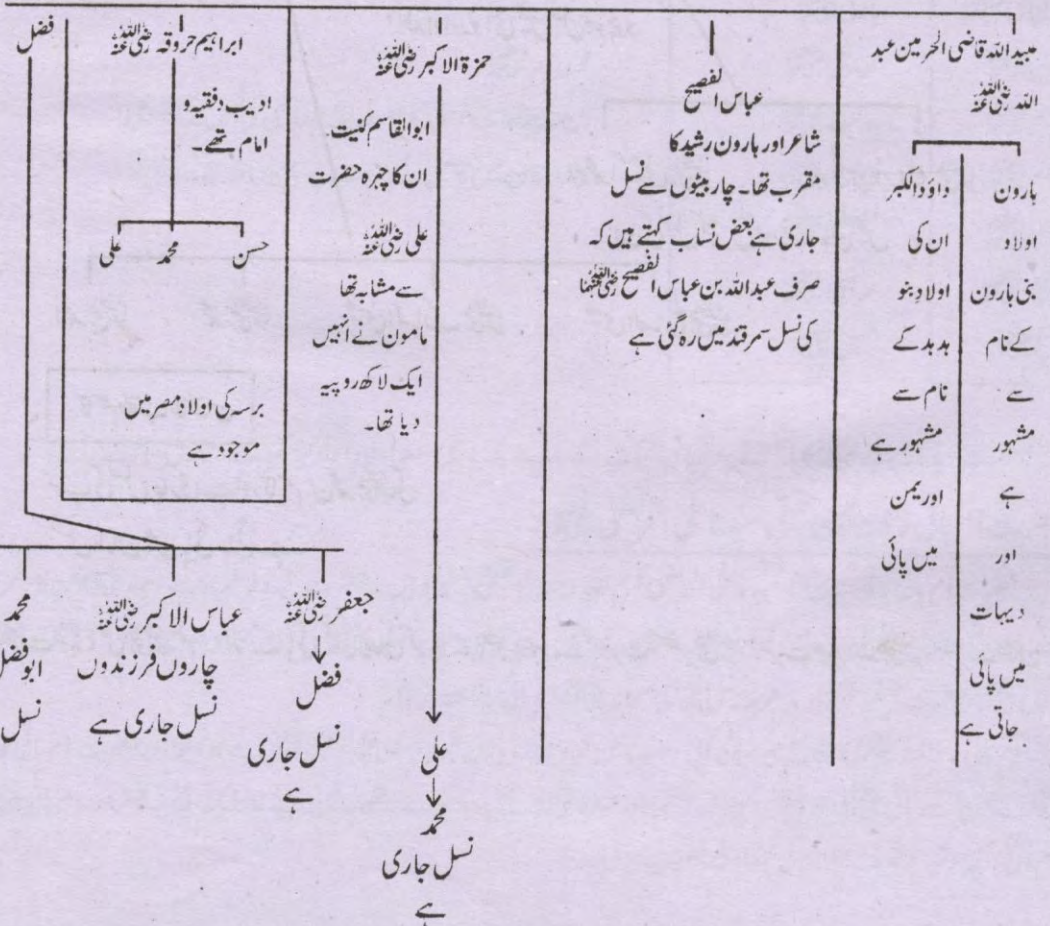 عبید اللہ قاضی الحرمین عبد
اللہ رضی اللہ عنہ
ہارون
اولاد
بنی ہارون
کے نام
سے
مشہور
ہے
اور
دیہات
میں پائی
جاتی ہے
داؤد الکبر
ان کی
اولاد بنو
ہد ہد کے
نام سے
مشہور ہے
اور یمن
میں پائی
عباس الفصیح
شاعر اور ہارون رشید کا
مقرب تھا۔ چار بیٹوں سے نسل
جاری ہے بعض نساب کہتے ہیں کہ
صرف عبداللہ بن عباس الفصیح رضی اللہ عنہما
کی نسل سمرقند میں رہ گئی ہے
حمزۃ الاکبر رضی اللہ عنہ
ابوالقاسم کنیت۔
ان کا چہرہ حضرت
علی رضی اللہ عنہ
سے مشابہ تھا
مامون نے انہیں
ایک لاکھ روپیہ
دیا تھا۔
علی
محمد
نسل جاری
ہے
ابراہیم حروقہ رضی اللہ عنہ
ادیب دفقیہ و
امام تھے۔
حسن محمد علی
برسہ کی اولاد مصر میں
موجود ہے
فضل
جعفر رضی اللہ عنہ
فضل
نسل جاری
ہے
عباس الاکبر رضی اللہ عنہ
چاروں فرزندوں
نسل جاری ہے
محمد
ابوفضل
نسل